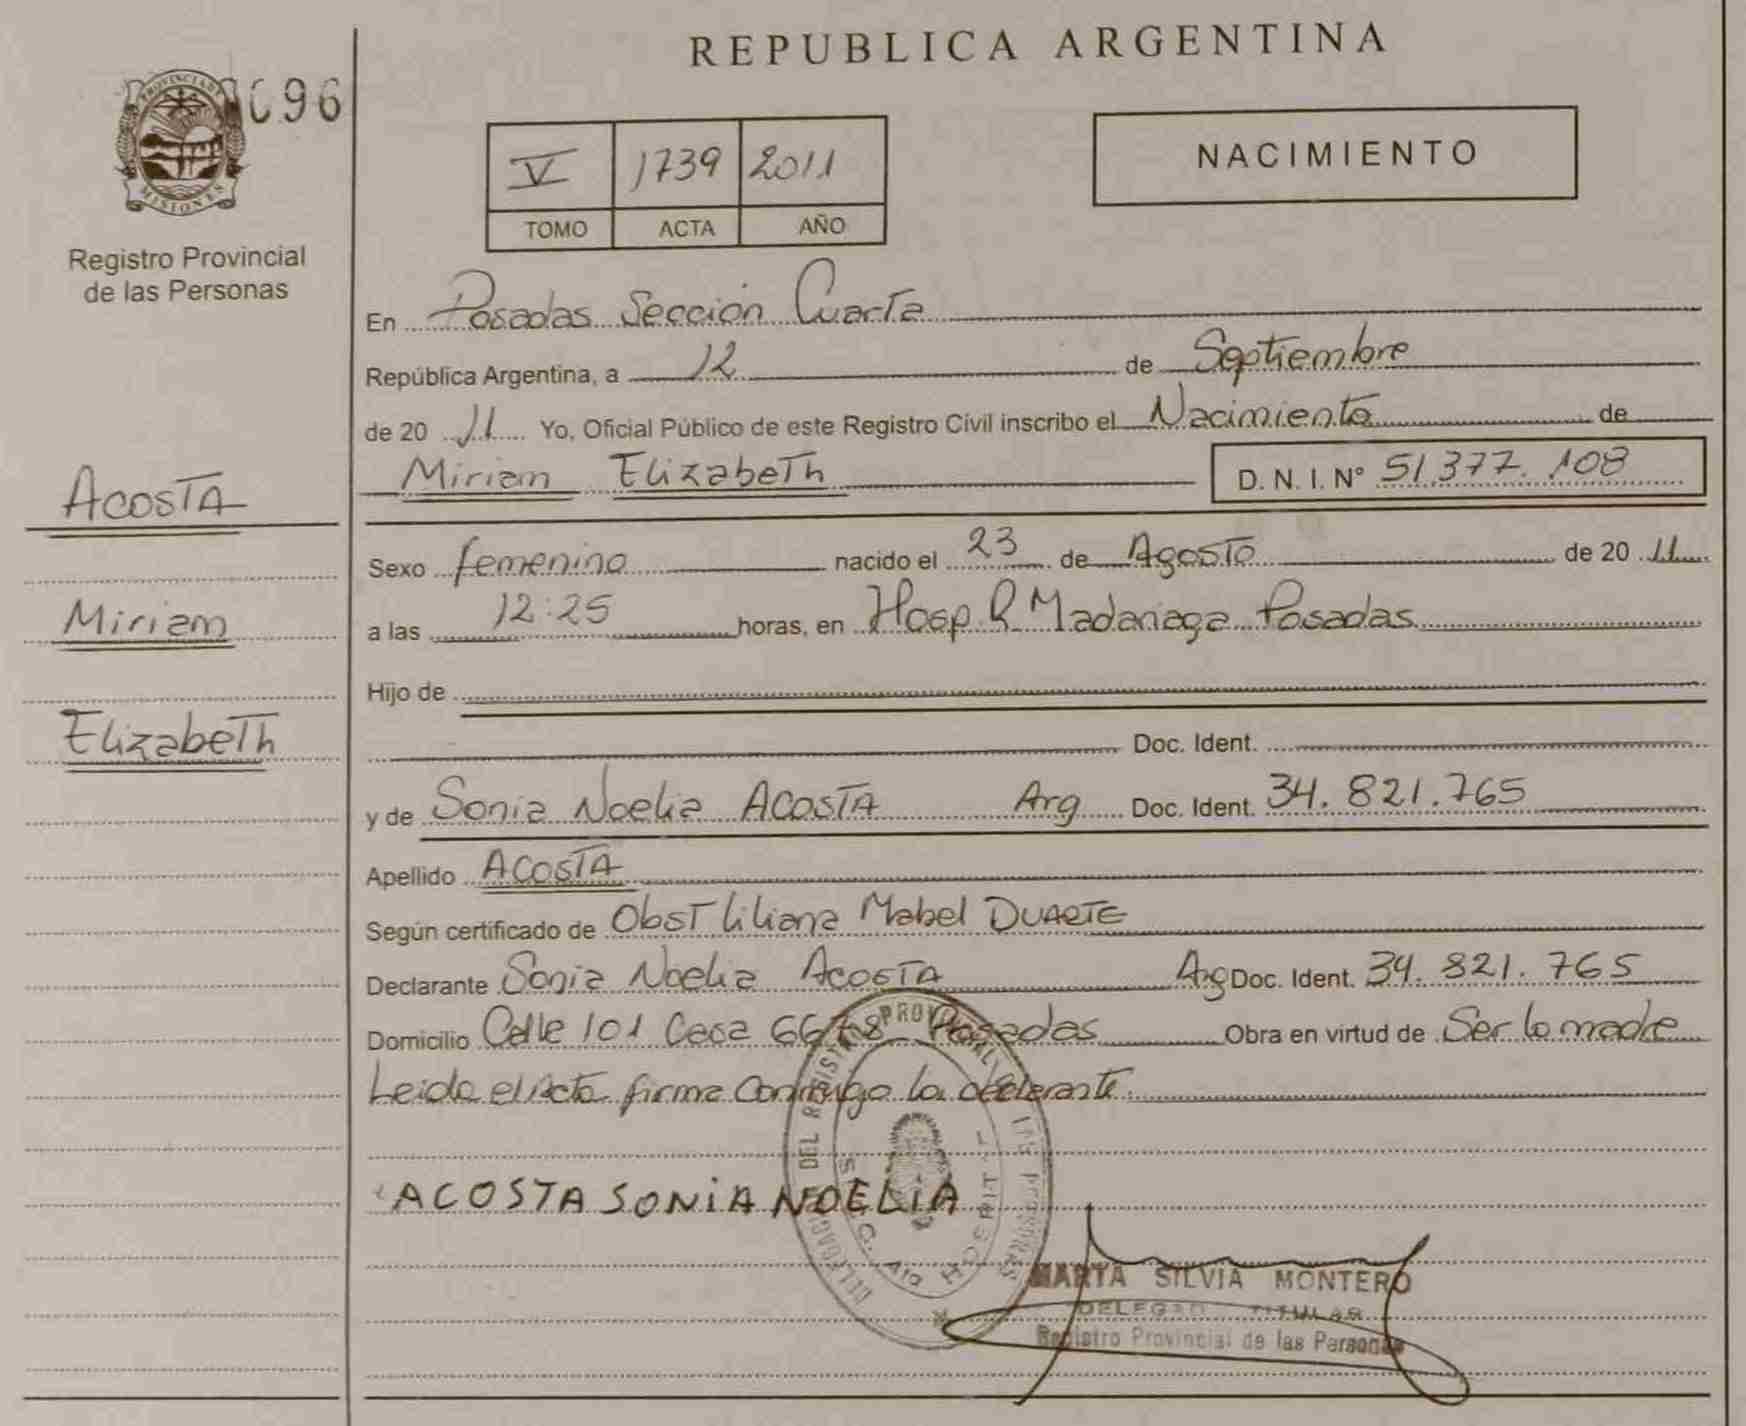 REPUBLICA ARGENTINA
PROVINCIA DE
MISIONES
096
Registro Provincial
de las Personas
V 1739 2011
TOMO ACTA AÑO
NACIMIENTO
ACOSTA
Miriam
Elizabeth
En Posadas Sección Cuarta
República Argentina, a 12 de Septiembre
de 20 11 Yo, Oficial Público de este Registro Civil inscribo el Nacimiento de
Miriam Elizabeth D. N. I. Nº 51.377.108
Sexo femenino nacido el 23 de Agosto de 20 11
a las 12:25 horas, en Hosp. R Madariaga Posadas
Hijo de
Doc. Ident.
y de Sonia Noelia ACOSTA Arg Doc. Ident. 34.821.765
Apellido ACOSTA
Según certificado de Obst Liliana Mabel DUARTE
Declarante Sonia Noelia ACOSTA Arg Doc. Ident. 34.821.765
Domicilio Calle 101 Casa Posadas Obra en virtud de Ser la madre
Leida el Acta firma conmigo la declarante.
ACOSTA SONiA NOELiA
MARTA SILVIA MONTERO
TITULAR
Registro Provincial de las Personas